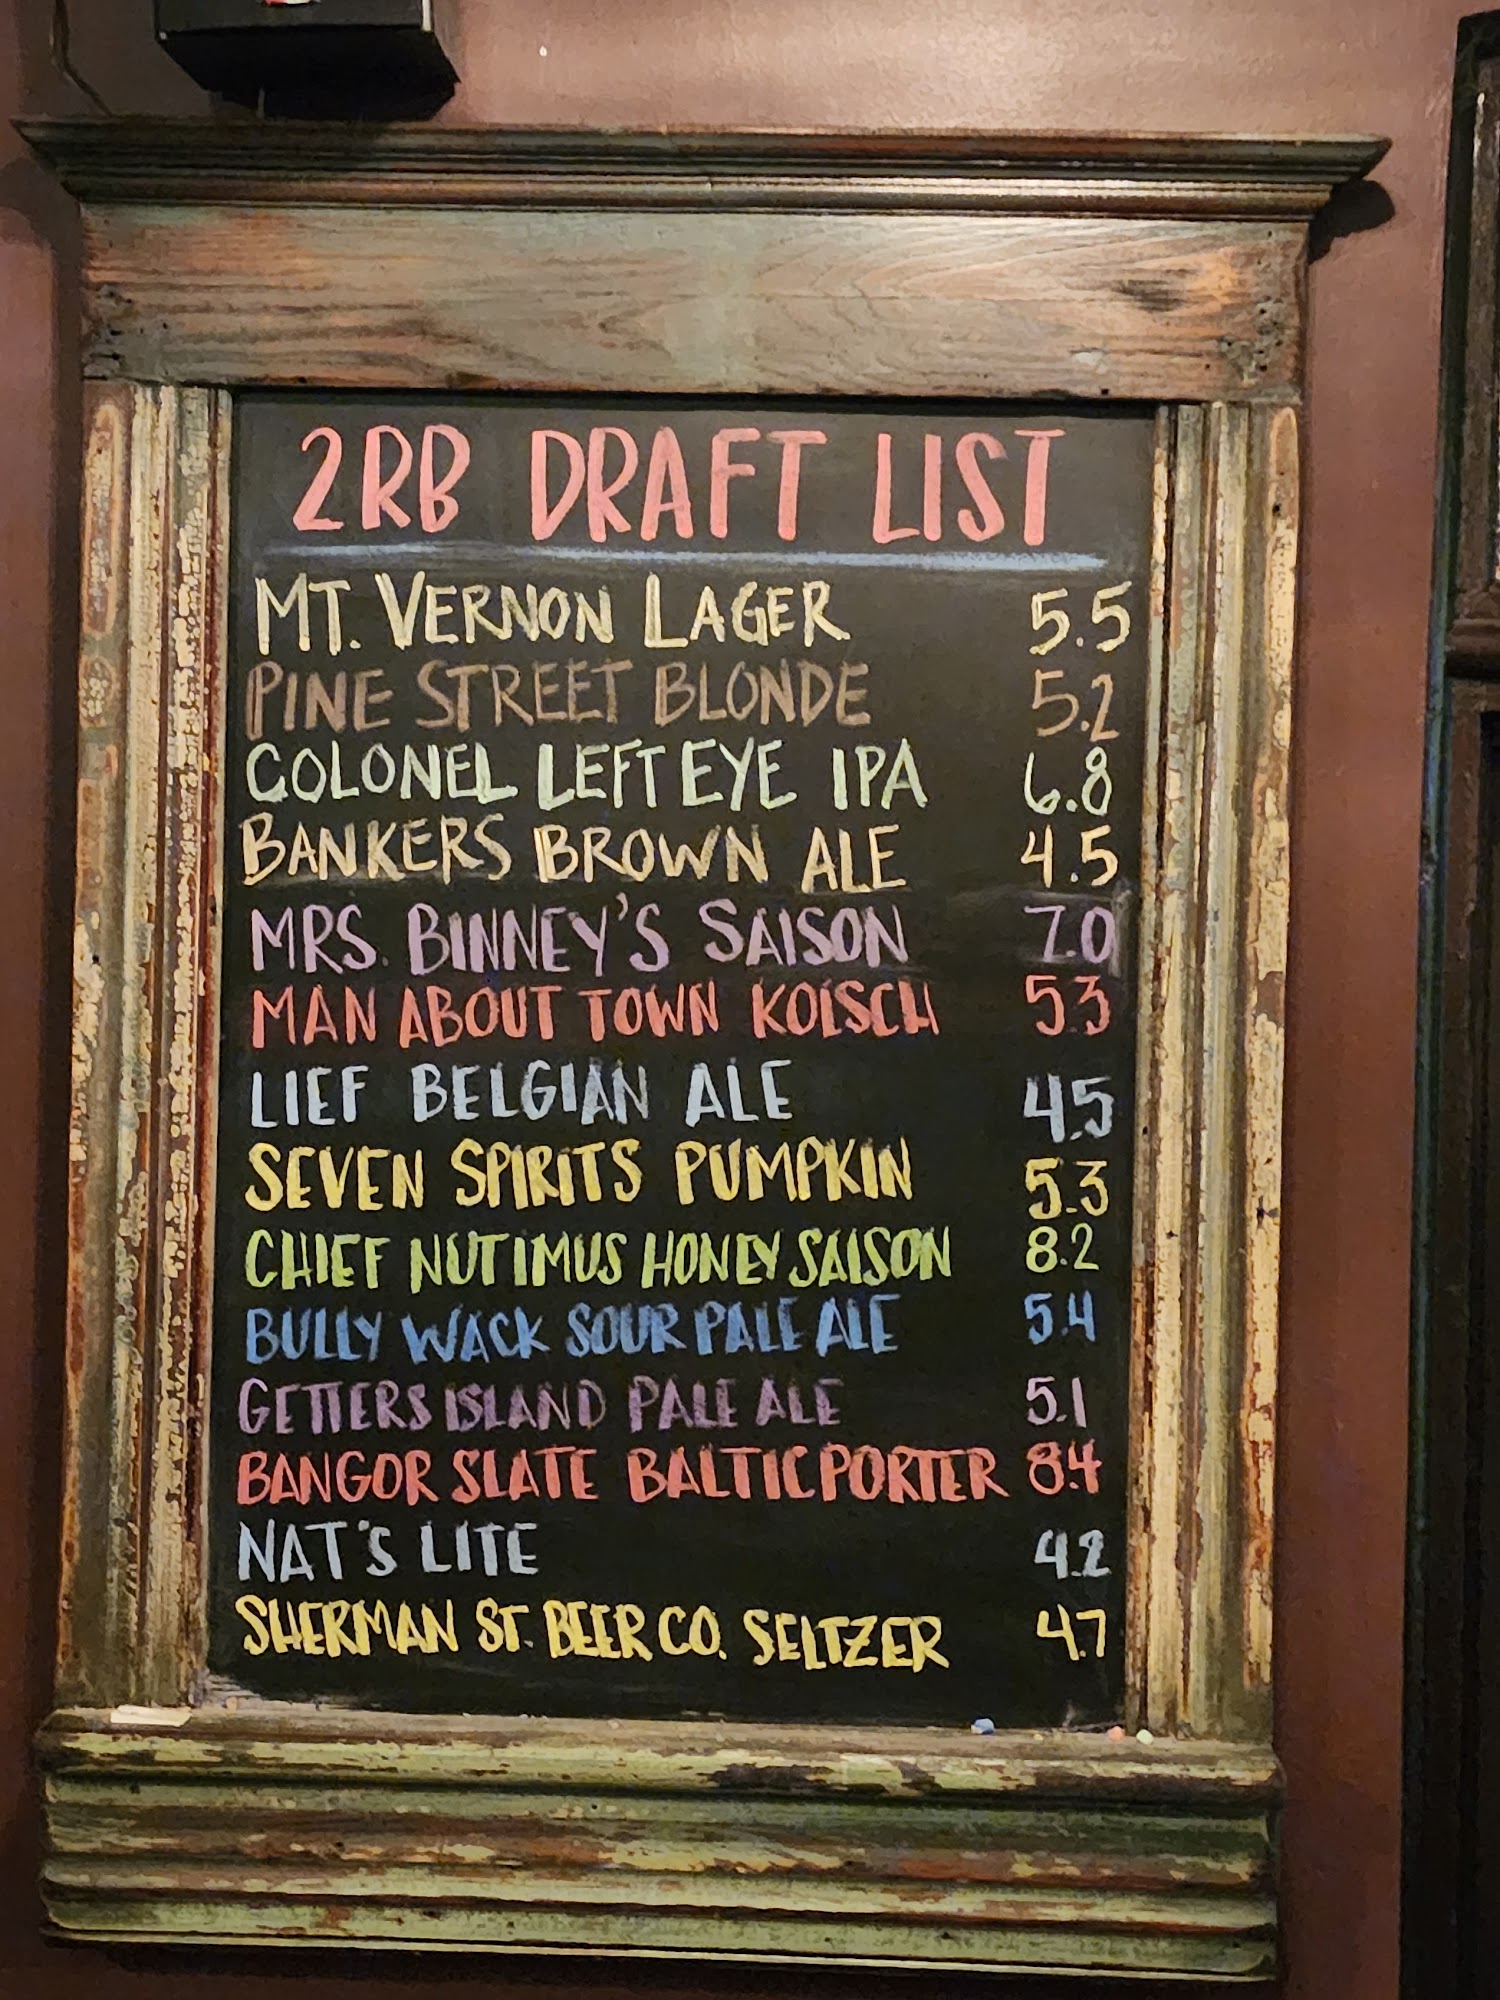 2RB DRAFT LIST
MT. VERNON LAGER 5.5
PINE STREET BLONDE 5.2
COLONEL LEFT EYE IPA 6.8
BANKERS BROWN ALE 4.5
MRS. BINNEY'S SAISON 7.0
MAN ABOUT TOWN KOISCH 5.3
LIEF BELGIAN ALE 4.5
SEVEN SPIRITS PUMPKIN 5.3
CHIEF NUTIMUS HONEY SAISON 8.2
BULLY WACK SOUR PALE ALE 5.4
GETTERS ISLAND PALE ALE 5.1
BANGOR SLATE BALTIC PORTER 8.4
NAT'S LITE 4.2
SHERMAN ST. BEER CO. SELTZER 4.7